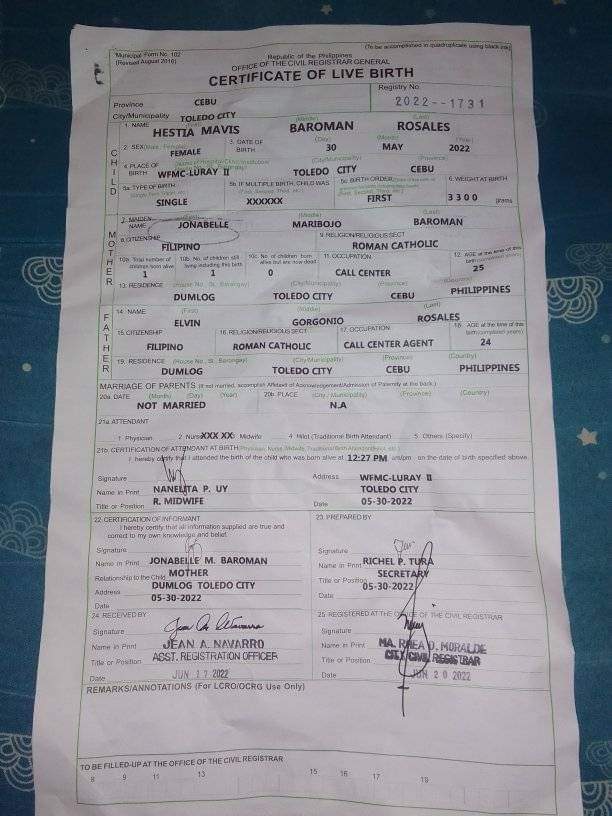 Municipal Form No. 102
(Revised August 2016)
(To be accomplished in quadruplicate using black ink)
Republic of the Philippines
OFFICE OF THE CIVIL REGISTRAR GENERAL
CERTIFICATE OF LIVE BIRTH
Province CEBU
Registry No. 2022--1731
City/Municipality TOLEDO CITY
CHILD
1. NAME (First) (Middle) (Last)
HESTIA MAVIS BAROMAN ROSALES
2. SEX (Male, Female) 3. DATE OF BIRTH (Day) (Month) (Year)
FEMALE 30 MAY 2022
4. PLACE OF BIRTH (City/Municipality) (Province)
WFMC-LURAY II TOLEDO CITY CEBU
5a. TYPE OF BIRTH 5b. IF MULTIPLE BIRTH, CHILD WAS 5c. BIRTH ORDER 6. WEIGHT AT BIRTH
SINGLE XXXXXX FIRST 3300 grams
MOTHER
7. MAIDEN NAME (Middle) (Last)
JONABELLE MARIBOJO BAROMAN
8. CITIZENSHIP 9. RELIGION/RELIGIOUS SECT
FILIPINO ROMAN CATHOLIC
10a. Total number of children born alive 10b. No. of children still living including this birth 10c. No. of children born alive but are now dead 11. OCCUPATION 12. AGE at the time of this birth (completed years)
1 1 0 CALL CENTER 25
13. RESIDENCE (House No., St., Barangay) (City/Municipality) (Province) (Country)
DUMLOG TOLEDO CITY CEBU PHILIPPINES
FATHER
14. NAME (First) (Middle) (Last)
ELVIN GORGONIO ROSALES
15. CITIZENSHIP 16. RELIGION/RELIGIOUS SECT 17. OCCUPATION 18. AGE at the time of this birth (completed years)
FILIPINO ROMAN CATHOLIC CALL CENTER AGENT 24
19. RESIDENCE (House No., St., Barangay) (City/Municipality) (Province) (Country)
DUMLOG TOLEDO CITY CEBU PHILIPPINES
MARRIAGE OF PARENTS (If not married, accomplish Affidavit of Acknowledgement/Admission of Paternity at the back.)
20a. DATE (Month) (Day) (Year) 20b. PLACE (City / Municipality) (Province) (Country)
NOT MARRIED N.A
21a. ATTENDANT
1 Physician 2 Nurse XXX XX Midwife 4 Hilot (Traditional Birth Attendant) 5 Others (Specify)
21b. CERTIFICATION OF ATTENDANT AT BIRTH (Physician, Nurse, Midwife, Traditional Birth Attendant/Hilot, etc.)
I hereby certify that I attended the birth of the child who was born alive at 12:27 PM am/pm on the date of birth specified above.
Signature Address WFMC-LURAY II
Name in Print NANELITA P. UY TOLEDO CITY
Title or Position R. MIDWIFE Date 05-30-2022
22. CERTIFICATION OF INFORMANT
I hereby certify that all information supplied are true and
correct to my own knowledge and belief.
Signature
Name in Print JONABELLE M. BAROMAN
Relationship to the Child MOTHER
Address DUMLOG TOLEDO CITY
Date 05-30-2022
23. PREPARED BY
Signature
Name in Print RICHEL P. TURA
Title or Position SECRETARY
Date 05-30-2022
24. RECEIVED BY
Signature
Name in Print JEAN A. NAVARRO
Title or Position ASST. REGISTRATION OFFICER
Date JUN 17 2022
25. REGISTERED AT THE OFFICE OF THE CIVIL REGISTRAR
Signature
Name in Print MA. RHEA D. MORALDE
Title or Position CITY CIVIL REGISTRAR
Date JUN 20 2022
REMARKS/ANNOTATIONS (For LCRO/OCRG Use Only)
TO BE FILLED-UP AT THE OFFICE OF THE CIVIL REGISTRAR
8 9 11 13 15 16 17 19